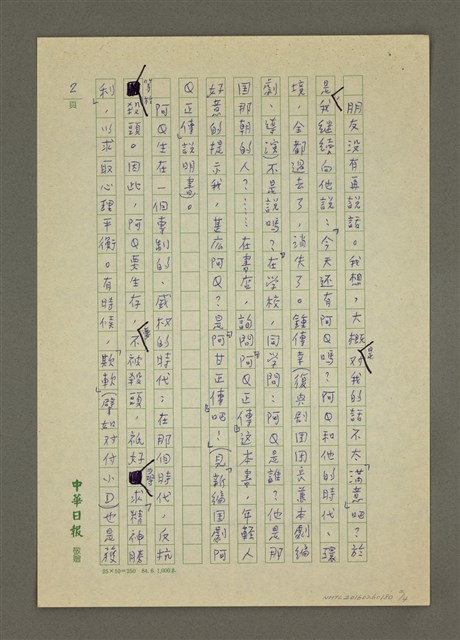 朋友沒有再說話。我想,大概是對我的話不太滿意吧?於
是我繼續向他說:「今天還有阿Q嗎?阿Q和他的時代、環
境,全都過去了,消失了。鍾傳幸(復興劇團團長兼本劇編
劇、導演)不是說嗎?『在学校,同学問:阿Q是誰?他是那
国那朝的人?……在書店,詢問「阿Q正傳」這本書,年輕人
好意的提示我,甚広阿Q?是「阿甘正傳」吧!』(見新編国劇阿
Q正傳說明書)。
阿Q生在一個專制的、威权的時代;在那個時代,反抗
殺頭。因此,阿Q要生存,不被殺頭,祇好求「精神勝
利」,以求取心理平衡。有時候,欺軟(譬如对付小D)也是获
2
頁
中華日報
25×10=250 84.6.1,000本